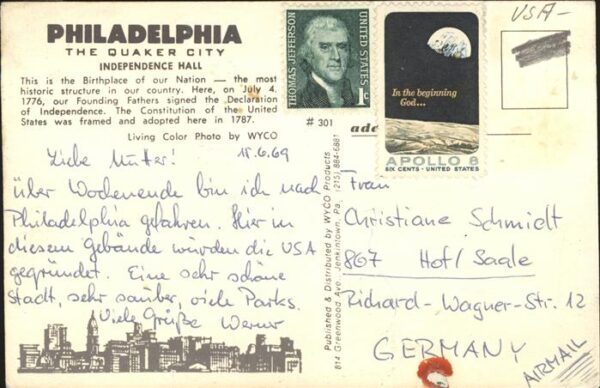 PHILADELPHIA
THE QUAKER CITY
INDEPENDENCE HALL
This is the Birthplace of our Nation — the most
historic structure in our country. Here, on July 4,
1776, our Founding Fathers signed the Declaration
of Independence. The Constitution of the United
States was framed and adopted here in 1787.
Living Color Photo by WYCO
Liebe Mutter! 18.6.69
über Wochenende bin ich nach
Philadelphia gefahren. Hier in
diesem Gebäude wurden die USA
gegründet. Eine sehr schöne
Stadt, sehr sauber, viele Parks.
Viele Grüße Werner
THOMAS JEFFERSON
UNITED STATES
1c
# 301
add
Published & Distributed by WYCO Products
814 Greenwood Ave., Jenkintown, Pa. (215) 884-6881
In the beginning
God...
APOLLO 8
SIX CENTS · UNITED STATES
USA-
Frau
Christiane Schmidt
867 Hof/Saale
Richard-Wagner-Str. 12
GERMANY
AIRMAIL